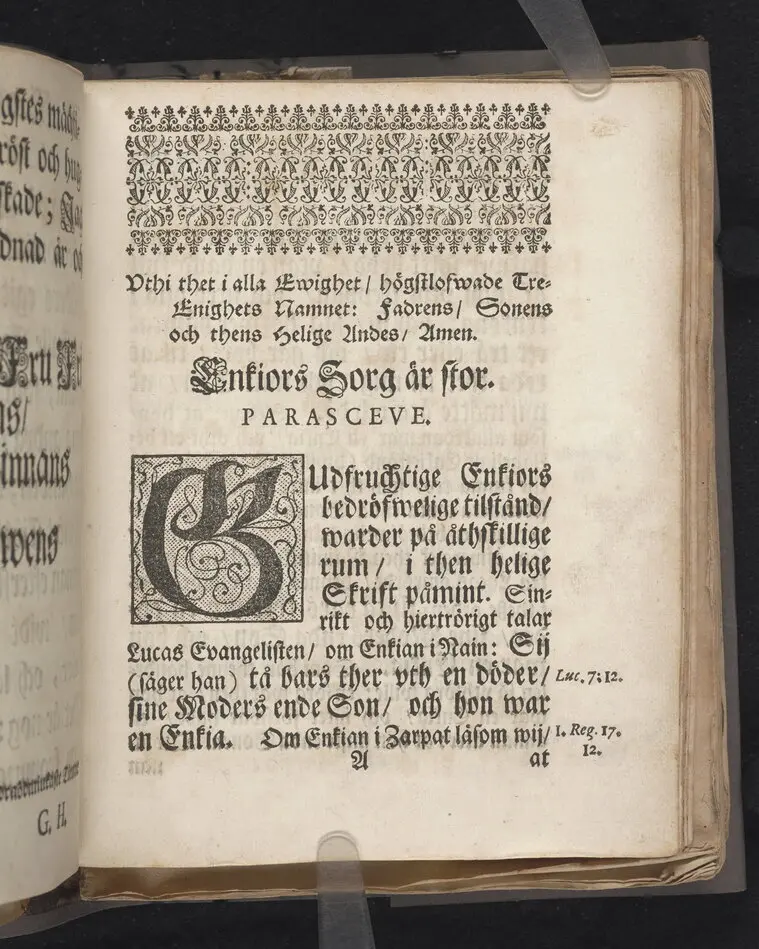 röst och
skade;
dnad är
Fru
as/
innans
wens
G. H.
Vthi thet i alla Ewighet / högstlofwade Tre-
Enighets Namnet: Fadrens / Sonens
och thens Helige Andes / Amen.
Enkiors Sorg är stor.
PARASCEVE.
GUdfruchtige Enkiors
bedröfwelige tilstånd /
warder på åthskillige
rum / i then helige
Skrift påmint. Sin-
rikt och hiertrörigt talar
Lucas Evangelisten / om Enkian i Nain: Sij
(säger han) tå bars ther vth en döder / Luc. 7: 12.
sine Moders ende Son / och hon war
en Enkia. Om Enkian i Zarpat läsom wij / 1. Reg. 17.
12.
A at